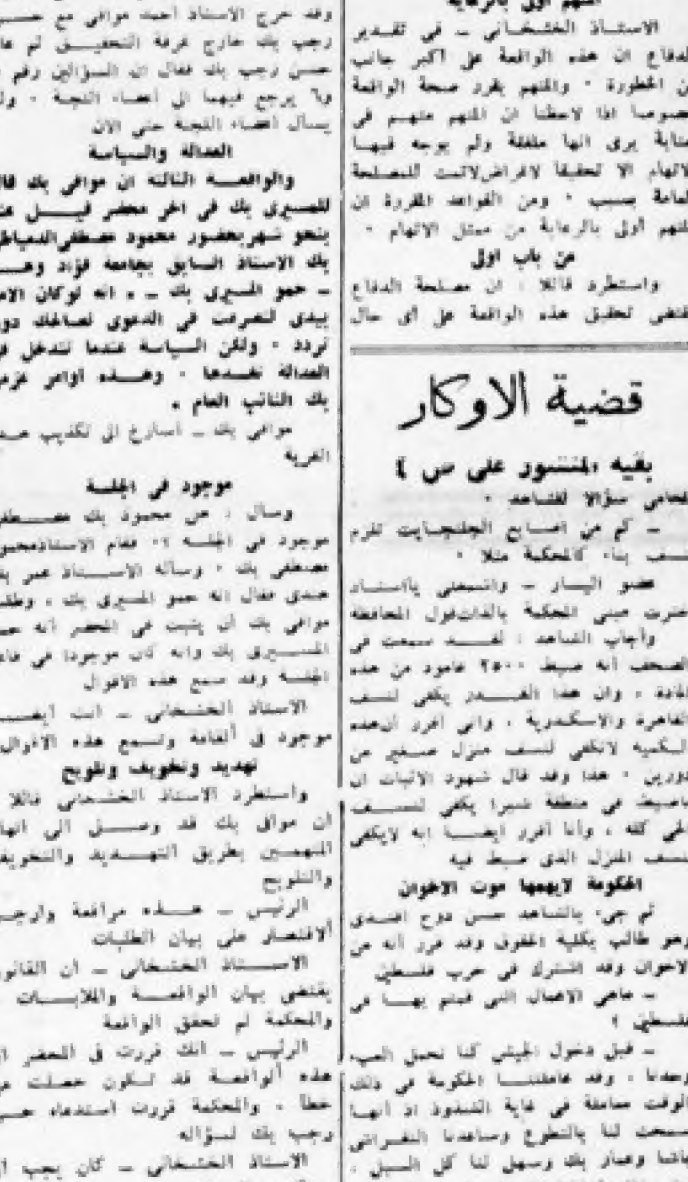 المتهم أولى بالرعاية
الاستاذ الخشخانى ـ فى تقدير
الدفاع ان هذه الواقعة على أكبر جانب
من الخطورة ٠ والمتهم يقرر صحة الواقعة
خصوصا اذا لاحظنا ان المتهم متهم فى
جناية يرى انها ملفقة ولم يوجه فيها
الاتهام الا تحقيقا لاغراض لاتمت للمصلحة
العامة بسبب ٠ ومن القواعد المقررة ان
المتهم أولى بالرعاية من ممثل الاتهام ٠
من باب اولى
واستطرد قائلا : ان مصلحة الدفاع
تقتضى تحقيق هذه الواقعة على أى حال
قضية الاوكار
بقية المنشور على ص ٤
المحامى سؤالا للشاهد ٠
ـ كم من اصابع الجلجنايت تلزم
نسف بناء كالمحكمة مثلا ٠
عضو اليسار ـ واشمعنى ياأستاذ
اخترت مبنى المحكمة بالذات قول المحافظة
وأجاب الشاهد : لقد سمعت فى
الصحف أنه ضبط ٢٥٠٠ عامود من هذه
المادة ، وان هذا القدر يكفى لنسف
القاهرة والاسكندرية ، وانى أقرر أن هذه
الكميه لاتكفى لنسف منزل صغير من
دورين ٠ هذا وقد قال شهود الاثبات ان
ماضبط فى منطقة شبرا يكفى لنسف
الحى كله ، وأنا أقرر ايضا انه لايكفى
لنسف المنزل الذى ضبط فيه
الحكومة لايهمها موت الاخوان
ثم جىء بالشاهد حسن دوح افندى
وهو طالب بكلية الحقوق وقد قرر أنه من
الاخوان وقد اشترك فى حرب فلسطين
ـ ماهى الاعمال التى قمتم بها فى
فلسطين ؟
ـ قبل دخول الجيش كنا نحمل العبء
وحدنا ، وقد عاملتنا الحكومة فى ذلك
الوقت معاملة فى غاية الشذوذ اذ أنها
سمحت لنا بالتطوع وساعدنا النقراشى
باشا وعمار بك وسهل لنا كل السبل ،
وقد خرج الاستاذ أحمد موافى مع حسن
رجب بك خارج غرفة التحقيق ثم عاد
حسن رجب بك فقال ان السؤالين رقم
و٦ يرجع فيهما الى أعضاء اللجنة ٠ ولم
يسأل أعضاء اللجنة حتى الان
العدالة والسياسة
والواقعة الثالثة ان موافى بك قال
للمسيرى بك فى اخر محضر قبل
بنحو شهر بحضور محمود مصطفى الدمياطى
بك الاستاذ السابق بجامعة فؤاد وهو
ـ حمو المسيرى بك ـ « انه لو كان الامر
بيدى لتصرفت فى الدعوى لصالحك دون
تردد ٠ ولكن السياسة عندما تتدخل فى
العدالة تفسدها ٠ وهذه أوامر عزمى
بك النائب العام »
موافى بك ـ أسارع الى تكذيب هذه
الفرية
موجود فى الجلسة
وسأل : هل محمود بك مصطفى
موجود فى الجلسة ؟ فقام الاستاذ محمود
مصطفى بك ٠ وسأله الاستاذ عمر بك
فقال انه حمو المسيرى بك ، وطلب
موافى بك أن يثبت فى المحضر أنه حمو
المسيرى بك وانه كان موجودا فى قاعة
الجلسة وقد سمع هذه الاقوال
الاستاذ الخشخانى ـ انت أيضا
موجود فى القاعة وتسمع هذه الاقوال
تهديد وتخويف وتلويح
وأستطرد الاستاذ الخشخانى قائلا
أن موافى بك قد وصل الى اتهام
المتهمين بطريق التهديد والتخويف
والتلويح
الرئيس ـ هذه مرافعة وارجو
الاقتصار على بيان الطلبات
الاستاذ الخشخانى ـ ان القانون
يقتضى بيان الواقعة والملابسات
والمحكمة لم تحقق الواقعة
الرئيس ـ انك قررت فى المحضر ان
هذه الواقعة قد تكون حصلت من
خطأ ، والمحكمة قررت استدعاء حسن
رجب بك لسؤاله
الاستاذ الخشخانى ـ كان يجب أن